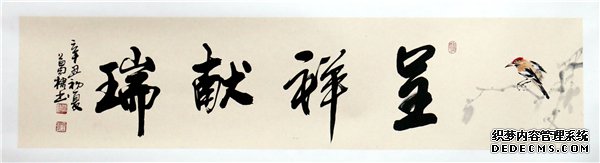 呈祥献瑞
辛丑初夏
织梦内容管理系统
DEDECMS.COM